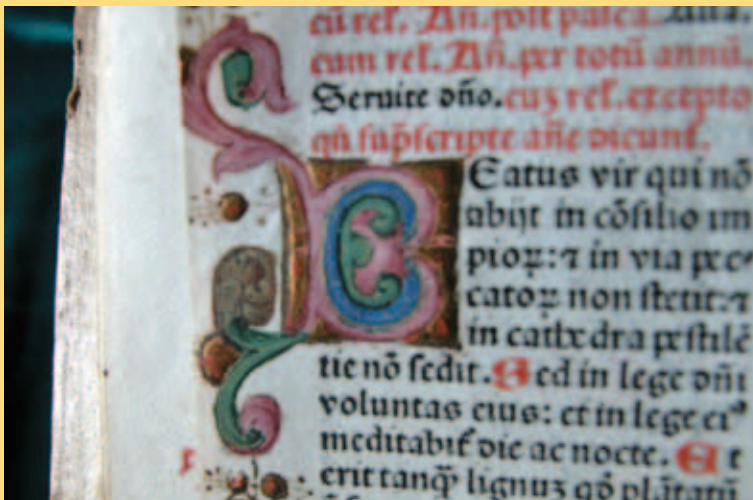 cū rel̄. Añ. post pasca.
cum rel̄. Añ. per totū annū.
Seruite dño. cuȝ rel̄. excepto
qñ sup̄scripte añe dicunt̄.
Eatus vir qui nō
abijt in cōsilio im
pioꝝ: ⁊ in via pec⸗
catoꝝ non stetit: ⁊
in cathedra pestilē
tie nō sedit. Sed in lege dñi
voluntas eius: et in lege ei⁹
meditabit̄ die ac nocte. Et
erit tanq̄ȝ lignuȝ qď pl̄ātatū